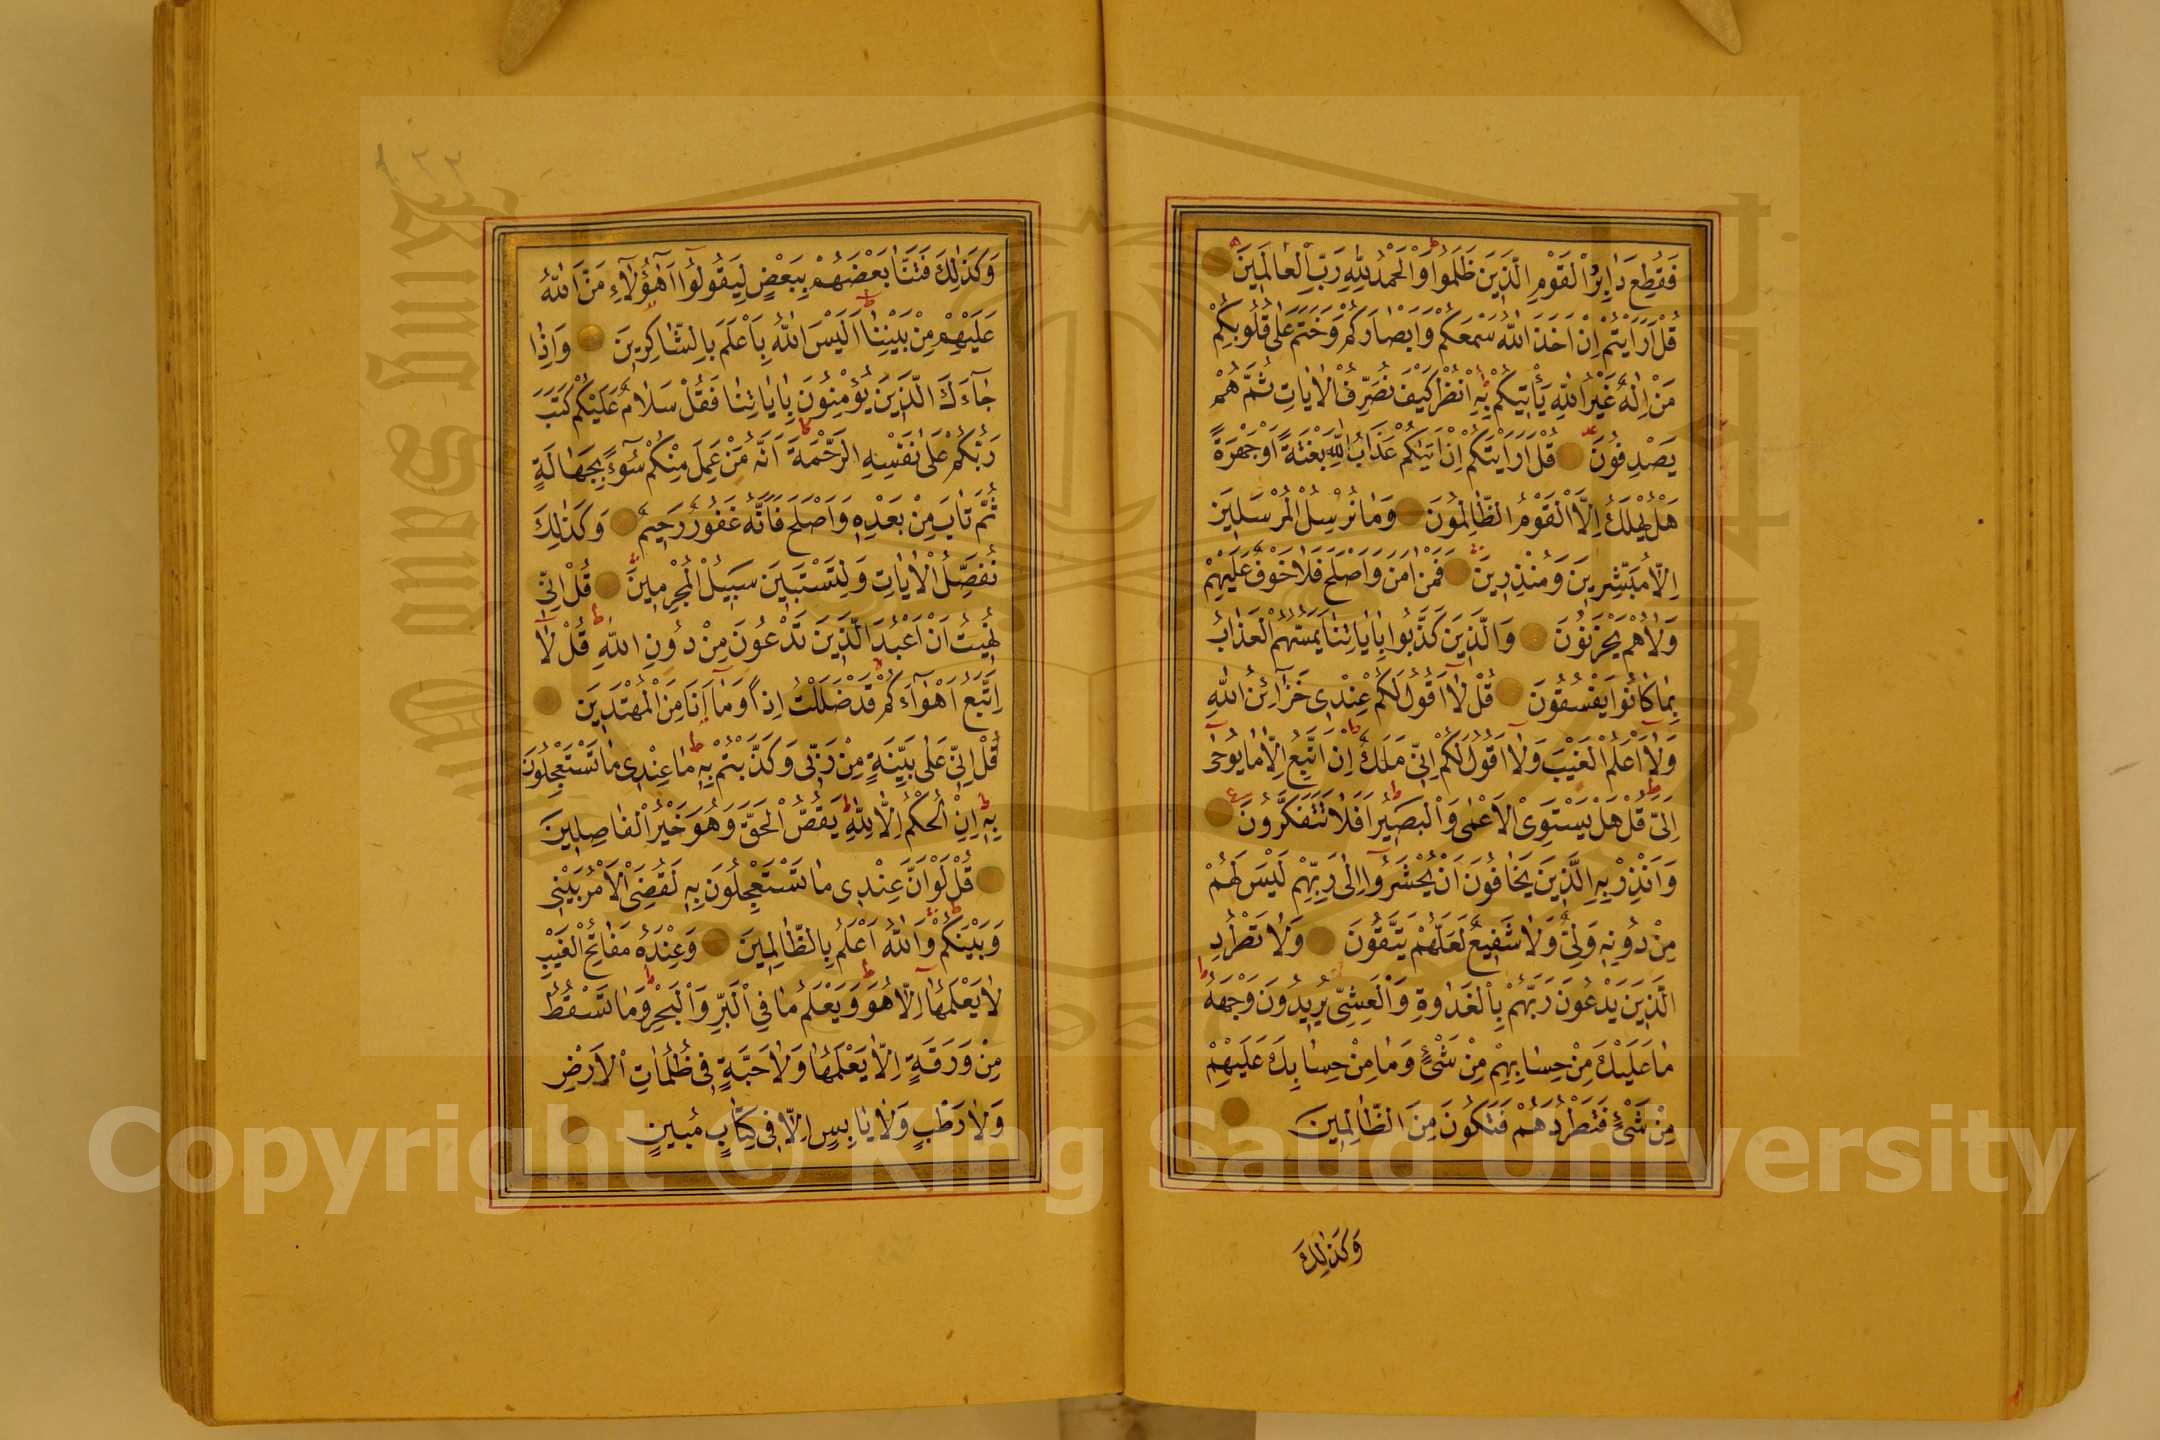 فَقُطِعَ دَابِرُ الْقَوْمِ الَّذِينَ ظَلَمُوا وَالْحَمْدُ لِلّٰهِ رَبِّ الْعَالَمِينَ
قُلْ اَرَاَيْتُمْ اِنْ اَخَذَ اللّٰهُ سَمْعَكُمْ وَاَبْصَارَكُمْ وَخَتَمَ عَلٰى قُلُوبِكُمْ
مَنْ اِلٰهٌ غَيْرُ اللّٰهِ يَأْتِيكُمْ بِهِ اُنْظُرْ كَيْفَ نُصَرِّفُ الْاٰيَاتِ ثُمَّ هُمْ
يَصْدِفُونَ قُلْ اَرَاَيْتَكُمْ اِنْ اَتٰيكُمْ عَذَابُ اللّٰهِ بَغْتَةً اَوْ جَهْرَةً
هَلْ يُهْلَكُ اِلَّا الْقَوْمُ الظَّالِمُونَ وَمَا نُرْسِلُ الْمُرْسَلِينَ
اِلَّا مُبَشِّرِينَ وَمُنْذِرِينَ فَمَنْ اٰمَنَ وَاَصْلَحَ فَلَا خَوْفٌ عَلَيْهِمْ
وَلَا هُمْ يَحْزَنُونَ وَالَّذِينَ كَذَّبُوا بِاٰيَاتِنَا يَمَسُّهُمُ الْعَذَابُ
بِمَا كَانُوا يَفْسُقُونَ قُلْ لَا اَقُولُ لَكُمْ عِنْدِي خَزَائِنُ اللّٰهِ
وَلَا اَعْلَمُ الْغَيْبَ وَلَا اَقُولُ لَكُمْ اِنِّي مَلَكٌ اِنْ اَتَّبِعُ اِلَّا مَا يُوحٰى
اِلَيَّ قُلْ هَلْ يَسْتَوِي الْاَعْمٰى وَالْبَصِيرُ اَفَلَا تَتَفَكَّرُونَ
وَاَنْذِرْ بِهِ الَّذِينَ يَخَافُونَ اَنْ يُحْشَرُوا اِلٰى رَبِّهِمْ لَيْسَ لَهُمْ
مِنْ دُونِهِ وَلِيٌّ وَلَا شَفِيعٌ لَعَلَّهُمْ يَتَّقُونَ وَلَا تَطْرُدِ
الَّذِينَ يَدْعُونَ رَبَّهُمْ بِالْغَدٰوةِ وَالْعَشِيِّ يُرِيدُونَ وَجْهَهُ
مَا عَلَيْكَ مِنْ حِسَابِهِمْ مِنْ شَيْءٍ وَمَا مِنْ حِسَابِكَ عَلَيْهِمْ
مِنْ شَيْءٍ فَتَطْرُدَهُمْ فَتَكُونَ مِنَ الظَّالِمِينَ
وَكَذٰلِكَ
وَكَذٰلِكَ فَتَنَّا بَعْضَهُمْ بِبَعْضٍ لِيَقُولُوا اَهٰؤُلَاءِ مَنَّ اللّٰهُ
عَلَيْهِمْ مِنْ بَيْنِنَا اَلَيْسَ اللّٰهُ بِاَعْلَمَ بِالشَّاكِرِينَ وَاِذَا
جَاءَكَ الَّذِينَ يُؤْمِنُونَ بِاٰيَاتِنَا فَقُلْ سَلَامٌ عَلَيْكُمْ كَتَبَ
رَبُّكُمْ عَلٰى نَفْسِهِ الرَّحْمَةَ اَنَّهُ مَنْ عَمِلَ مِنْكُمْ سُوءًا بِجَهَالَةٍ
ثُمَّ تَابَ مِنْ بَعْدِهِ وَاَصْلَحَ فَاَنَّهُ غَفُورٌ رَحِيمٌ وَكَذٰلِكَ
نُفَصِّلُ الْاٰيَاتِ وَلِتَسْتَبِينَ سَبِيلُ الْمُجْرِمِينَ قُلْ اِنِّي
نُهِيتُ اَنْ اَعْبُدَ الَّذِينَ تَدْعُونَ مِنْ دُونِ اللّٰهِ قُلْ لَا
اَتَّبِعُ اَهْوَاءَكُمْ قَدْ ضَلَلْتُ اِذًا وَمَا اَنَا مِنَ الْمُهْتَدِينَ
قُلْ اِنِّي عَلٰى بَيِّنَةٍ مِنْ رَبِّي وَكَذَّبْتُمْ بِهِ مَا عِنْدِي مَا تَسْتَعْجِلُونَ
بِهِ اِنِ الْحُكْمُ اِلَّا لِلّٰهِ يَقُصُّ الْحَقَّ وَهُوَ خَيْرُ الْفَاصِلِينَ
قُلْ لَوْ اَنَّ عِنْدِي مَا تَسْتَعْجِلُونَ بِهِ لَقُضِيَ الْاَمْرُ بَيْنِي
وَبَيْنَكُمْ وَاللّٰهُ اَعْلَمُ بِالظَّالِمِينَ وَعِنْدَهُ مَفَاتِحُ الْغَيْبِ
لَا يَعْلَمُهَا اِلَّا هُوَ وَيَعْلَمُ مَا فِي الْبَرِّ وَالْبَحْرِ وَمَا تَسْقُطُ
مِنْ وَرَقَةٍ اِلَّا يَعْلَمُهَا وَلَا حَبَّةٍ فِي ظُلُمَاتِ الْاَرْضِ
وَلَا رَطْبٍ وَلَا يَابِسٍ اِلَّا فِي كِتَابٍ مُبِينٍ
Copyright © King Saud University